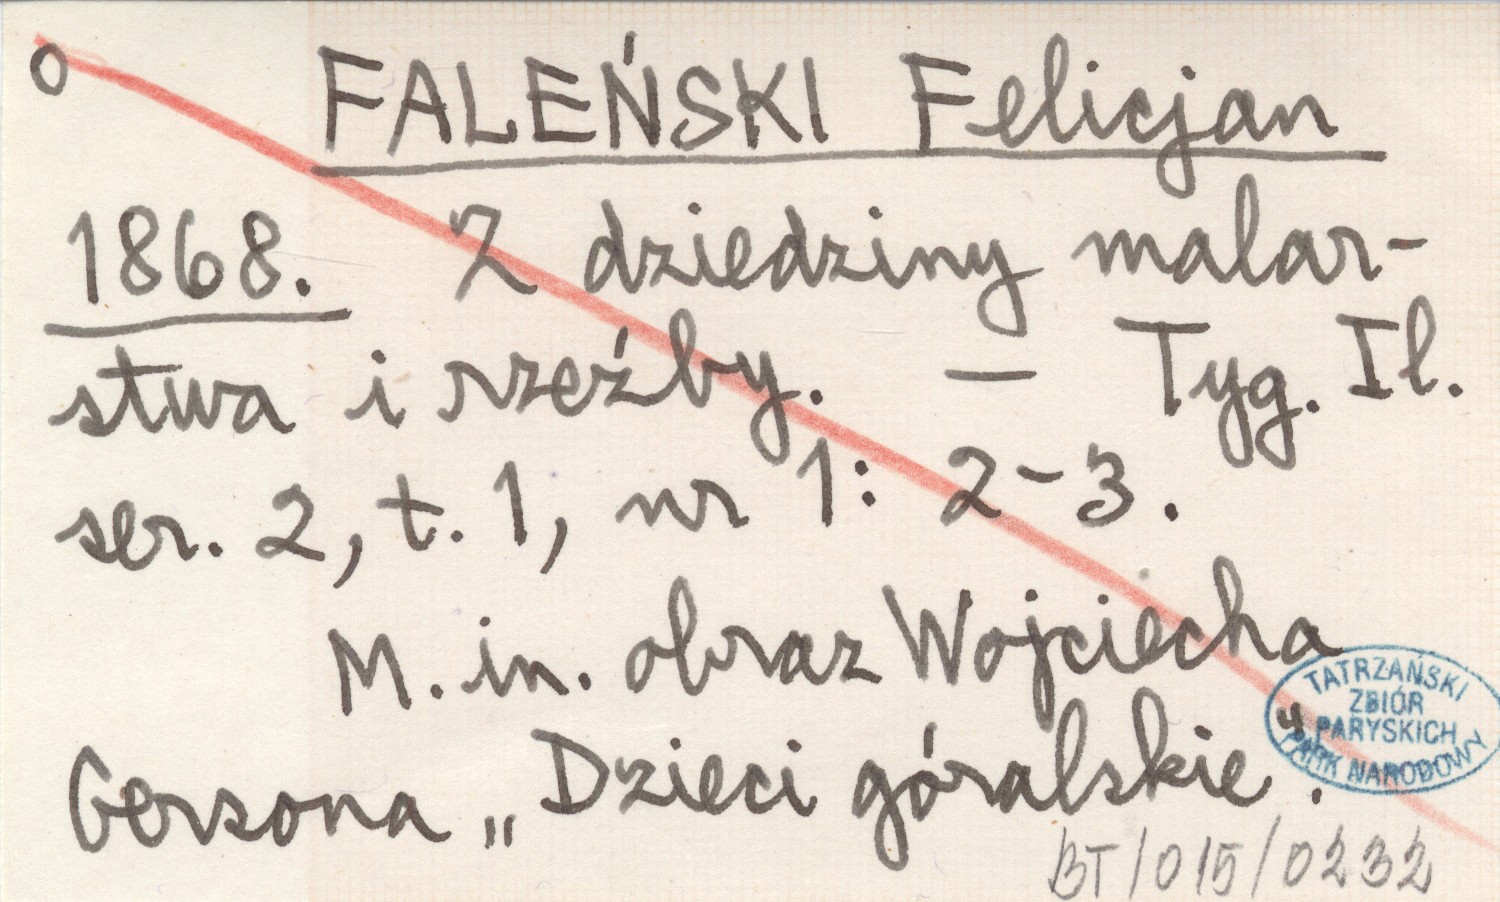 o FALEŃSKI Felicjan
1868. Z dziedziny malar-
stwa i rzeźby. — Tyg. Il.
ser. 2, t. 1, nr 1: 2-3.
M. in. obraz Wojciecha
Gersona „Dzieci góralskie".
TATRZAŃSKI
ZBIÓR
PARYSKICH
PARK NARODOWY
BT/015/0232